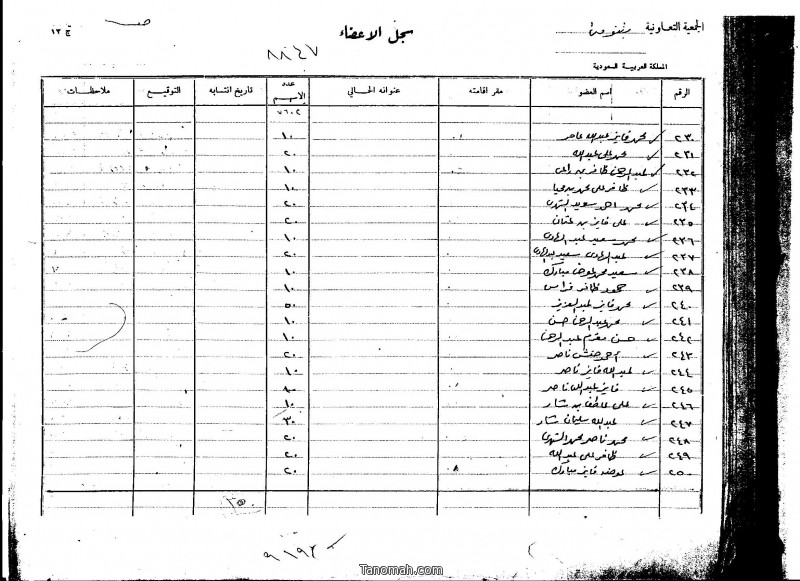 الجمعية التعاونية بتنومة
سجل الاعضاء
ج ١٣
٨٨٤٧
المملكة العربية السعودية
الرقم اسم العضو مقر اقامته عنوانه الحالي عدد الاسهم تاريخ انتسابه التوقيع ملاحظات
٧٦٠٢
٢٣٠ محمد فايز عبدالله عامر ١٠
٢٣١ محمد علي عبدالله ٢٠
٢٣٢ عبدالرحمن ظافر بن ١٠
٢٣٣ ظافر علي محمد بن يحيا ١٠
٢٣٤ محمد احمد سعيد الشهري ٢٠
٢٣٥ علي فايز بن عثمان ٢٠
٢٣٦ محمد سعيد عبد الهادي ١٠
٢٣٧ عبد الهادي سعيد عبدالهادي ٢٠
٢٣٨ سعيد محمد عوض مبارك ١٠
٢٣٩ حمود ظافر فراس ١٠
٢٤٠ محمد فايز عبدالعزيز ٥٠
٢٤١ محمد عبدالرحمن حسن ١٠
٢٤٢ حسن مقرم عبدالرحمن ١٠
٢٤٣ احمد حنش ناصر ٢٠
٢٤٤ عبدالله فايز ناصر ١٠
٢٤٥ فايز عبدالله ناصر ٨٠
٢٤٦ علي عاطف بن شار ١٠
٢٤٧ عبدالله سليمان شار ٣٠
٢٤٨ محمد ناصر محمد الشهري ٢٠
٢٤٩ ظافر علي عبدالله ٢٠
٢٥٠ عوضه فايز مبارك ٢٠
٣٥٠
٩١٩٢
Tanomah.com